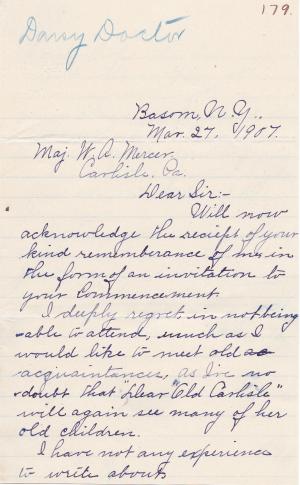 179.
Daisy Doctor
Basom, N.Y.,
Mar. 27, 1907.
Maj. W. A. Mercer,
Carlisle, Pa.
Dear Sir:-
Will now
acknowledge the receipt of your
kind rememberance of me, in
the form of an invitation to
your Commencement.
I deeply regret in not being
-able to attend, much as I
would like to meet old ac
acquaintances, as I've no
doubt that "dear "Old Carlisle"
will again see many of her
old children.
I have not any experience
to write about